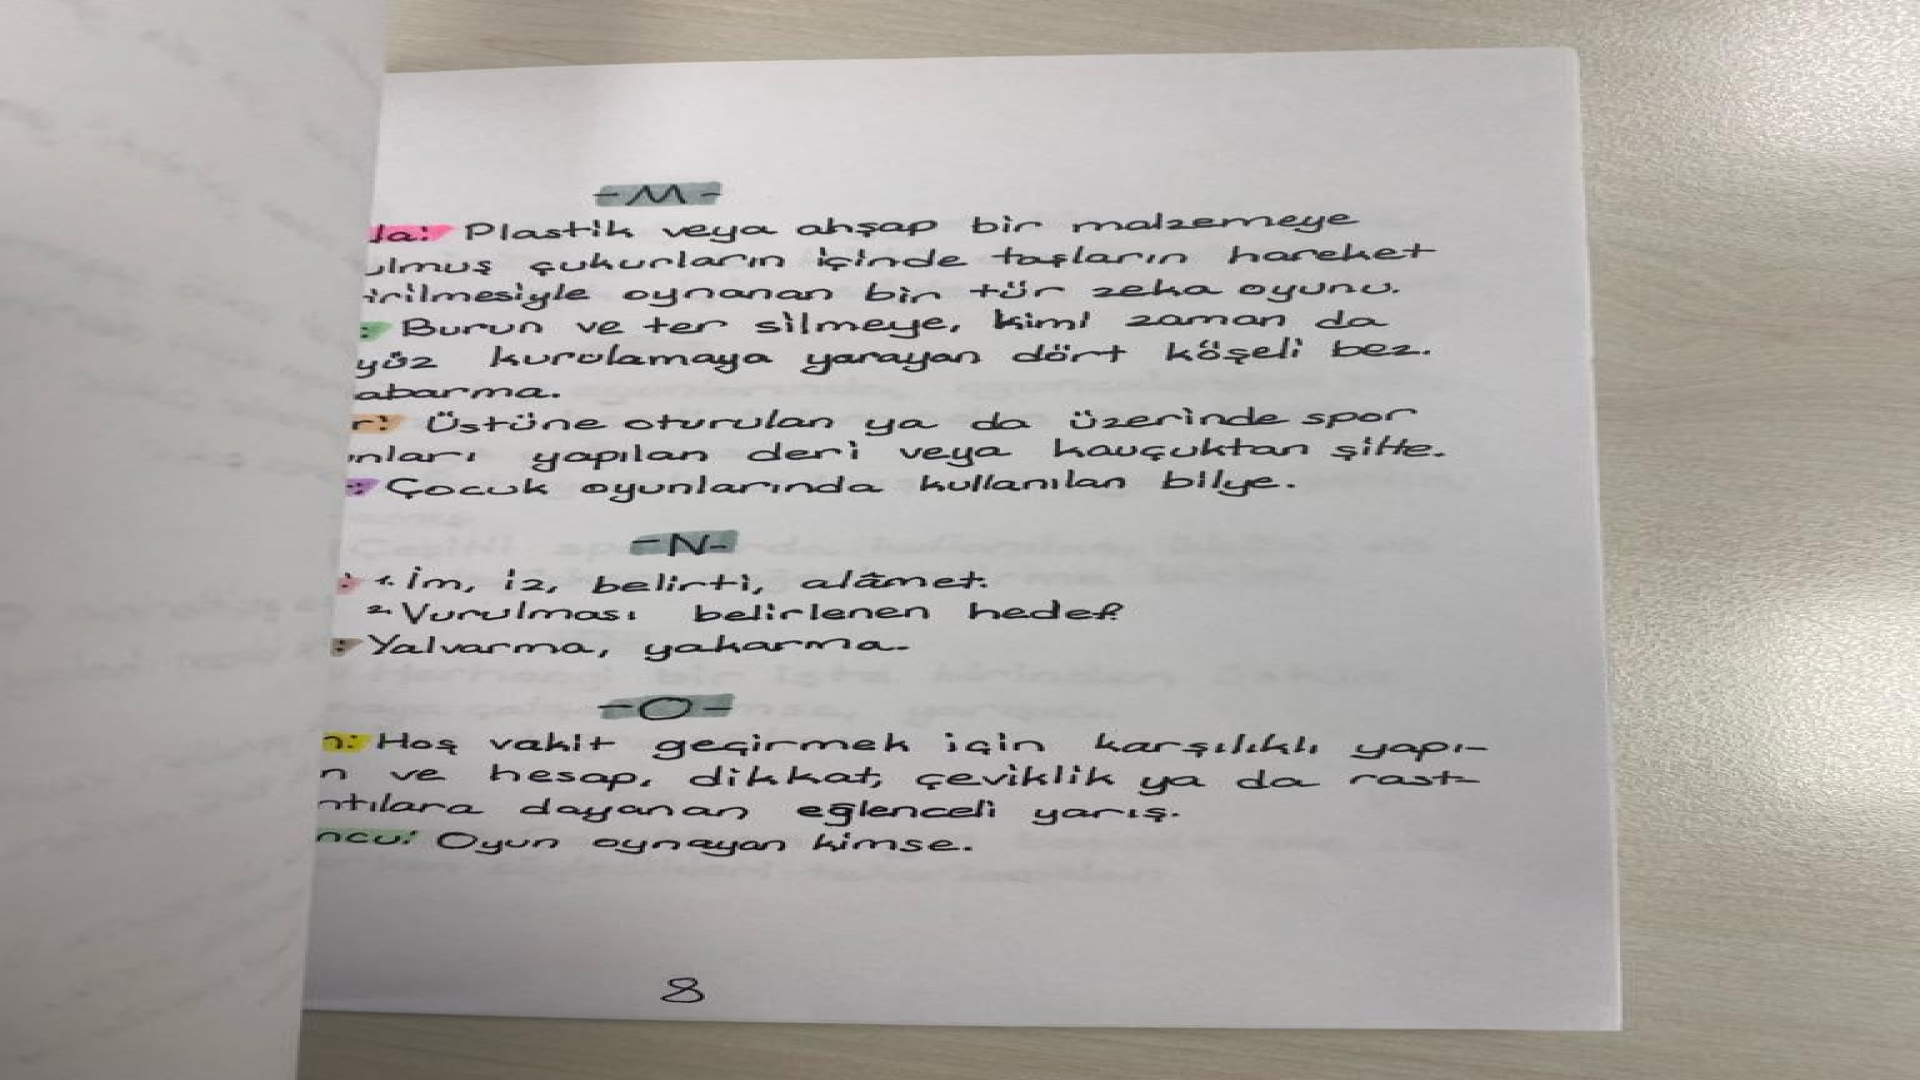 -M-
la: Plastik veya ahşap bir malzemeye
ulmuş çukurların içinde taşların hareket
tirilmesiyle oynanan bir tür zeka oyunu.
: Burun ve ter silmeye, kimi zaman da
yüz kurulamaya yarayan dört köşeli bez.
abarma.
r: Üstüne oturulan ya da üzerinde spor
nları yapılan deri veya kauçuktan şilte.
: Çocuk oyunlarında kullanılan bilye.
-N-
: 1. İm, iz, belirti, alâmet.
2. Vurulması belirlenen hedef.
: Yalvarma, yakarma.
-O-
n: Hoş vakit geçirmek için karşılıklı yapı-
n ve hesap, dikkat, çeviklik ya da rast-
ntılara dayanan eğlenceli yarış.
ncu: Oyun oynayan kimse.
8